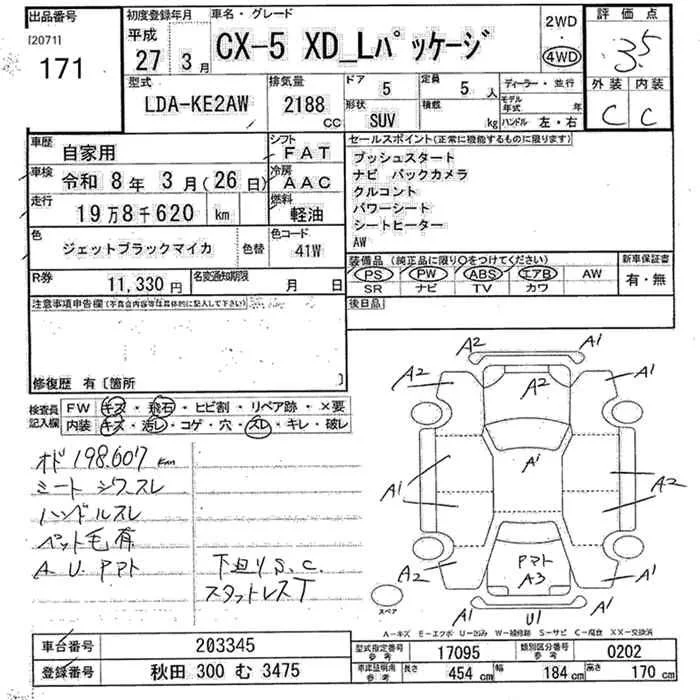 出品番号
[20711]
171
初度登録年月
平成
27年 3月
車名・グレード
CX-5 XD_Lパッケージ
2WD
・
4WD
評価点
3.5
外装 内装
C C
型式
LDA-KE2AW
排気量
2188 CC
ドア 5
形状 SUV
定員 5 人
積載 kg
ディーラー・並行
モデル年式 年
ハンドル 左・右
車歴 自家用
シフト FAT
車検 令和 8年 3月(26日)
冷房 AAC
走行 19万8千620 km
燃料 軽油
色 ジェットブラックマイカ 色替
色コード 41W
R券 11,330 円
名変通知期限 月 日
セールスポイント(正常に機能するものに限ります)
プッシュスタート
ナビ バックカメラ
クルコント
パワーシート
シートヒーター
AW
装備品(純正品に限り○をつけてください)
PS PW ABS エアB AW
SR ナビ TV カワ
新車保証書
有・無
注意事項申告欄(不具合内容等は具体的に記入して下さい)
後日品
修復歴 有〔箇所 〕
検査員記入欄
FW キズ・飛石・ヒビ割・リペア跡・×要
内装 キズ・汚レ・コゲ・穴・スレ・キレ・破レ
オド198.607km
シート シワ、スレ
ハンドルスレ
ペット毛有
A.U.Pマト
下廻りS.C.
スタットレスT
A2 A1
A2 A2 A1
A1 A1 A2
A1 A2
A2 Pマト A1
A3
U1
スペア
A-キズ E-エクボ U-凹み W-補修跡 S-サビ C-腐食 XX-交換済
車台番号 203345
登録番号 秋田 300 む 3475
型式指定番号 参考 17095
類別区分番号 参考 0202
車庫証明用 参考 長さ 454 cm 幅 184 cm 高さ 170 cm